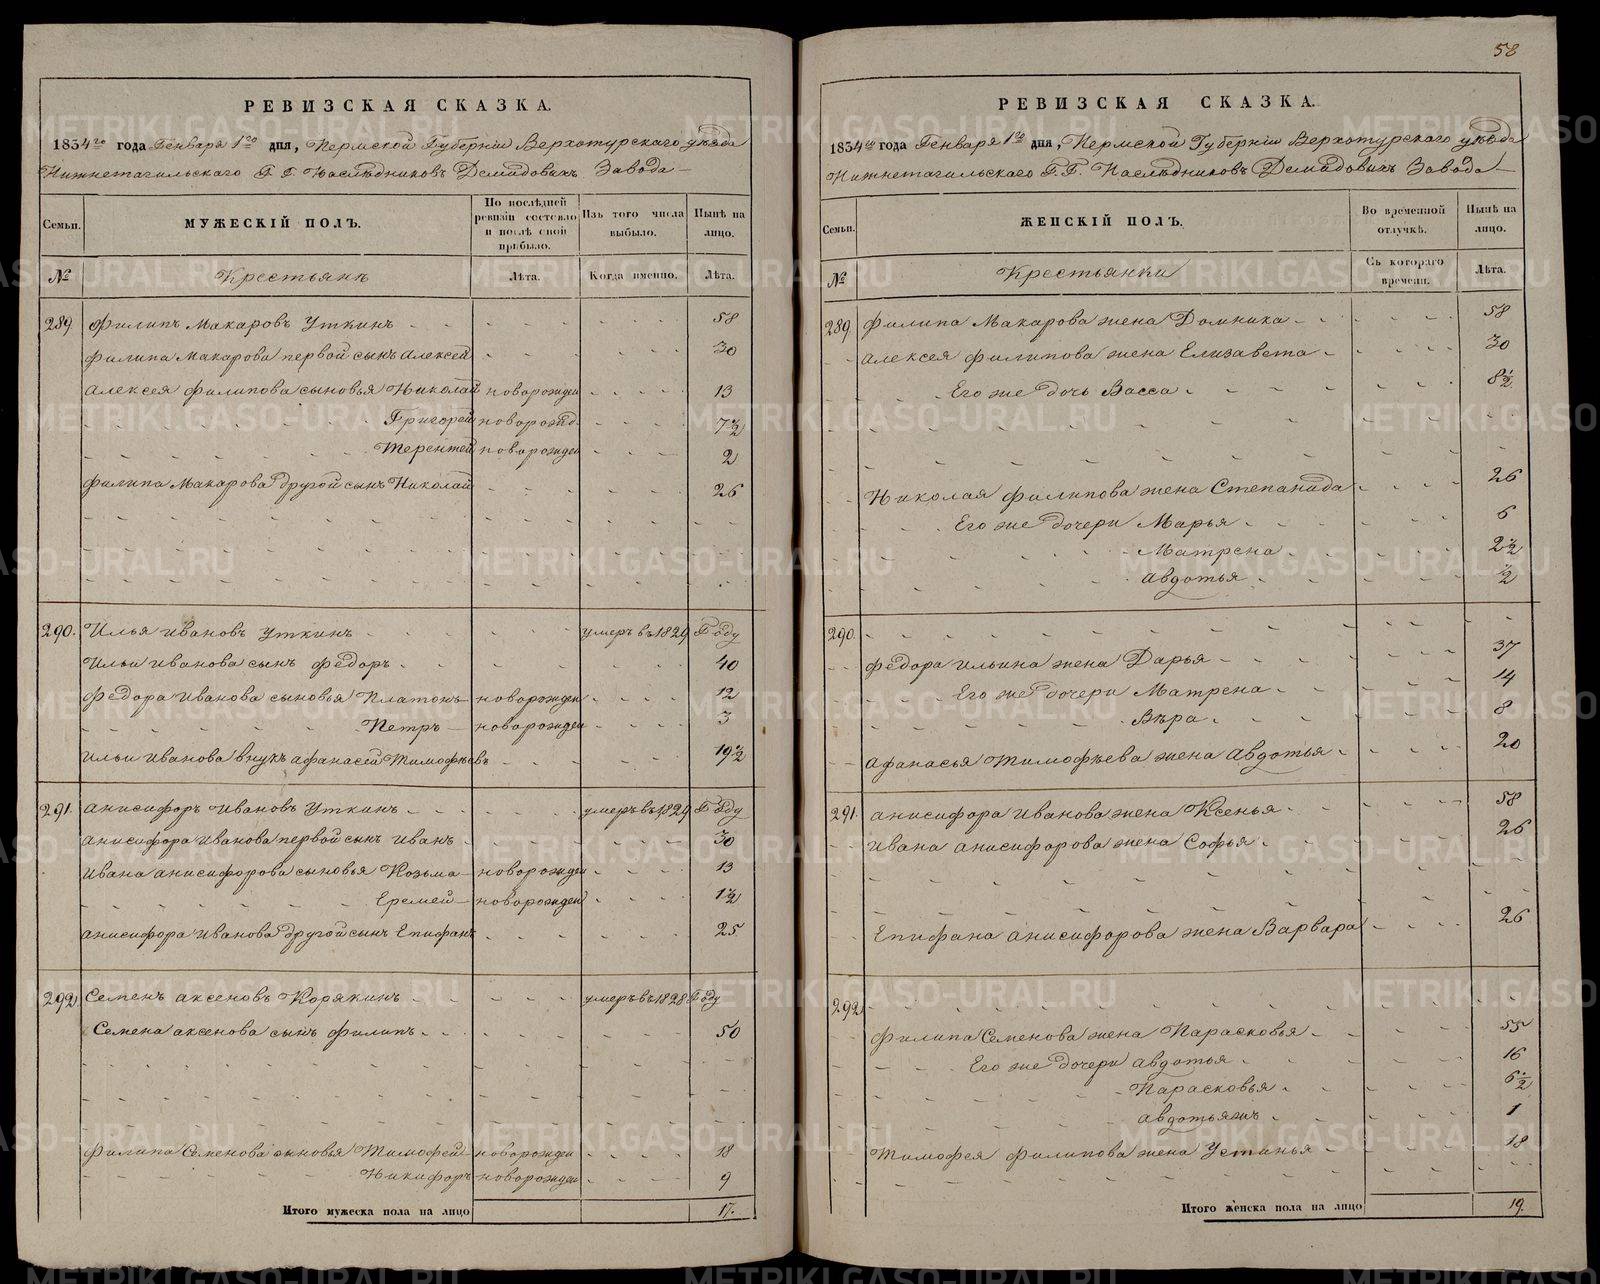 РЕВИЗСКАЯ СКАЗКА.
1834го года Генваря 1го дня, Пермской Губерніи Верхотурскаго уѣзда
Нижнетагильскаго Г. Г. Наслѣдниковъ Демидовыхъ Завода
Семьи.
МУЖЕСКІЙ ПОЛЪ.
По послѣдней ревизіи состояло и послѣ оной прибыло.
Изъ того числа выбыло.
Нынѣ на лицо.
№
Крестьянъ
Лѣта.
Когда именно.
Лѣта.
289 Филипъ Макаровъ Уткинъ 58
Филипа Макарова первой сынъ Алексей 30
Алексея Филипова сыновья Николай новорожден 13
Григорей новорожд. 7 1/2
Терентей новорожден 2
Филипа Макарова другой сынъ Николай 26
290. Илья Ивановъ Уткинъ умеръ въ 1829 Году
Ильи Иванова сынъ Федоръ 40
Федора Иванова сыновья Платонъ новорожден 12
Петръ новорожден 3
Ильи Иванова внукъ Афанасей Тимофѣевъ 19 1/2
291. Анисифоръ Ивановъ Уткинъ умеръ въ 1829 Году
Анисифора Иванова первой сынъ Иванъ 30
Ивана Анисифорова сыновья Козьма новорожден 13
Еремей новорожден 1 1/2
Анисифора Иванова другой сынъ Епифанъ 25
292 Семенъ Аксеновъ Корякинъ умеръ въ 1828 Году
Семена Аксенова сынъ Филипъ 50
Филипа Семенова сыновья Тимофей новорожден 18
Никифоръ новорожден 9
Итого мужеска пола на лицо 17.
58
РЕВИЗСКАЯ СКАЗКА.
1834го года Генваря 1го дня, Пермской Губерніи Верхотурскаго уѣзда
Нижнетагильскаго Г. Г. Наслѣдниковъ Демидовыхъ Завода
Семьи.
ЖЕНСКІЙ ПОЛЪ.
Во временной отлучкѣ.
Нынѣ на лицо.
№
Крестьянки
Съ котораго времени.
Лѣта.
289. Филипа Макарова жена Домника 58
Алексея Филипова жена Елизавета 30
Его же дочь Васса 8 1/2
Николая Филипова жена Степанида 26
Его же дочери Марья 6
Матрена 2 1/2
Авдотья 1/2
290.
Федора Ильина жена Дарья 37
Его же дочери Матрена 14
Вѣра 8
Афанасья Тимофѣева жена Авдотья 20
291. Анисифора Иванова жена Ксенья 58
Ивана Анисифорова жена Софья 26
Епифана Анисифорова жена Варвара 26
292
Филипа Семенова жена Парасковья 55
Его же дочери Авдотья 16
Парасковья 6 1/2
Авдотья жъ 1
Тимофея Филипова жена Устинья 18
Итого женска пола на лицо 19.
METRIKI.GASO-URAL.RU